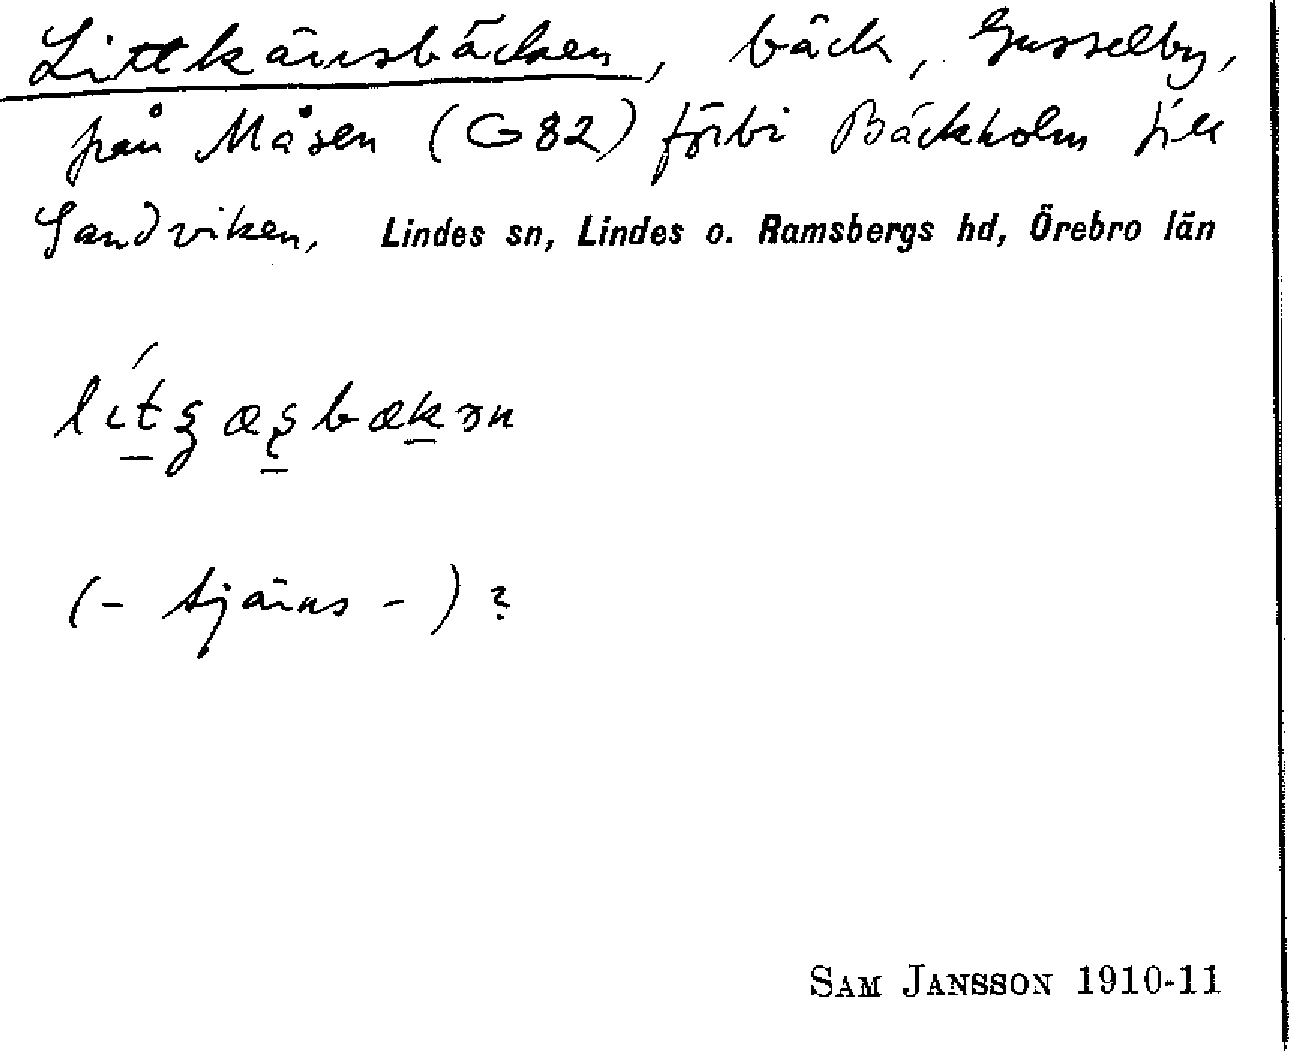 Littkärnsbäcken, bäck, Gusselby,
från Måsen (G82) förbi Bäckholm till
Sandviken, Lindes sn, Lindes o. Ramsbergs hd, Örebro län
(- tjärns -) ?
SAM JANSSON 1910-11